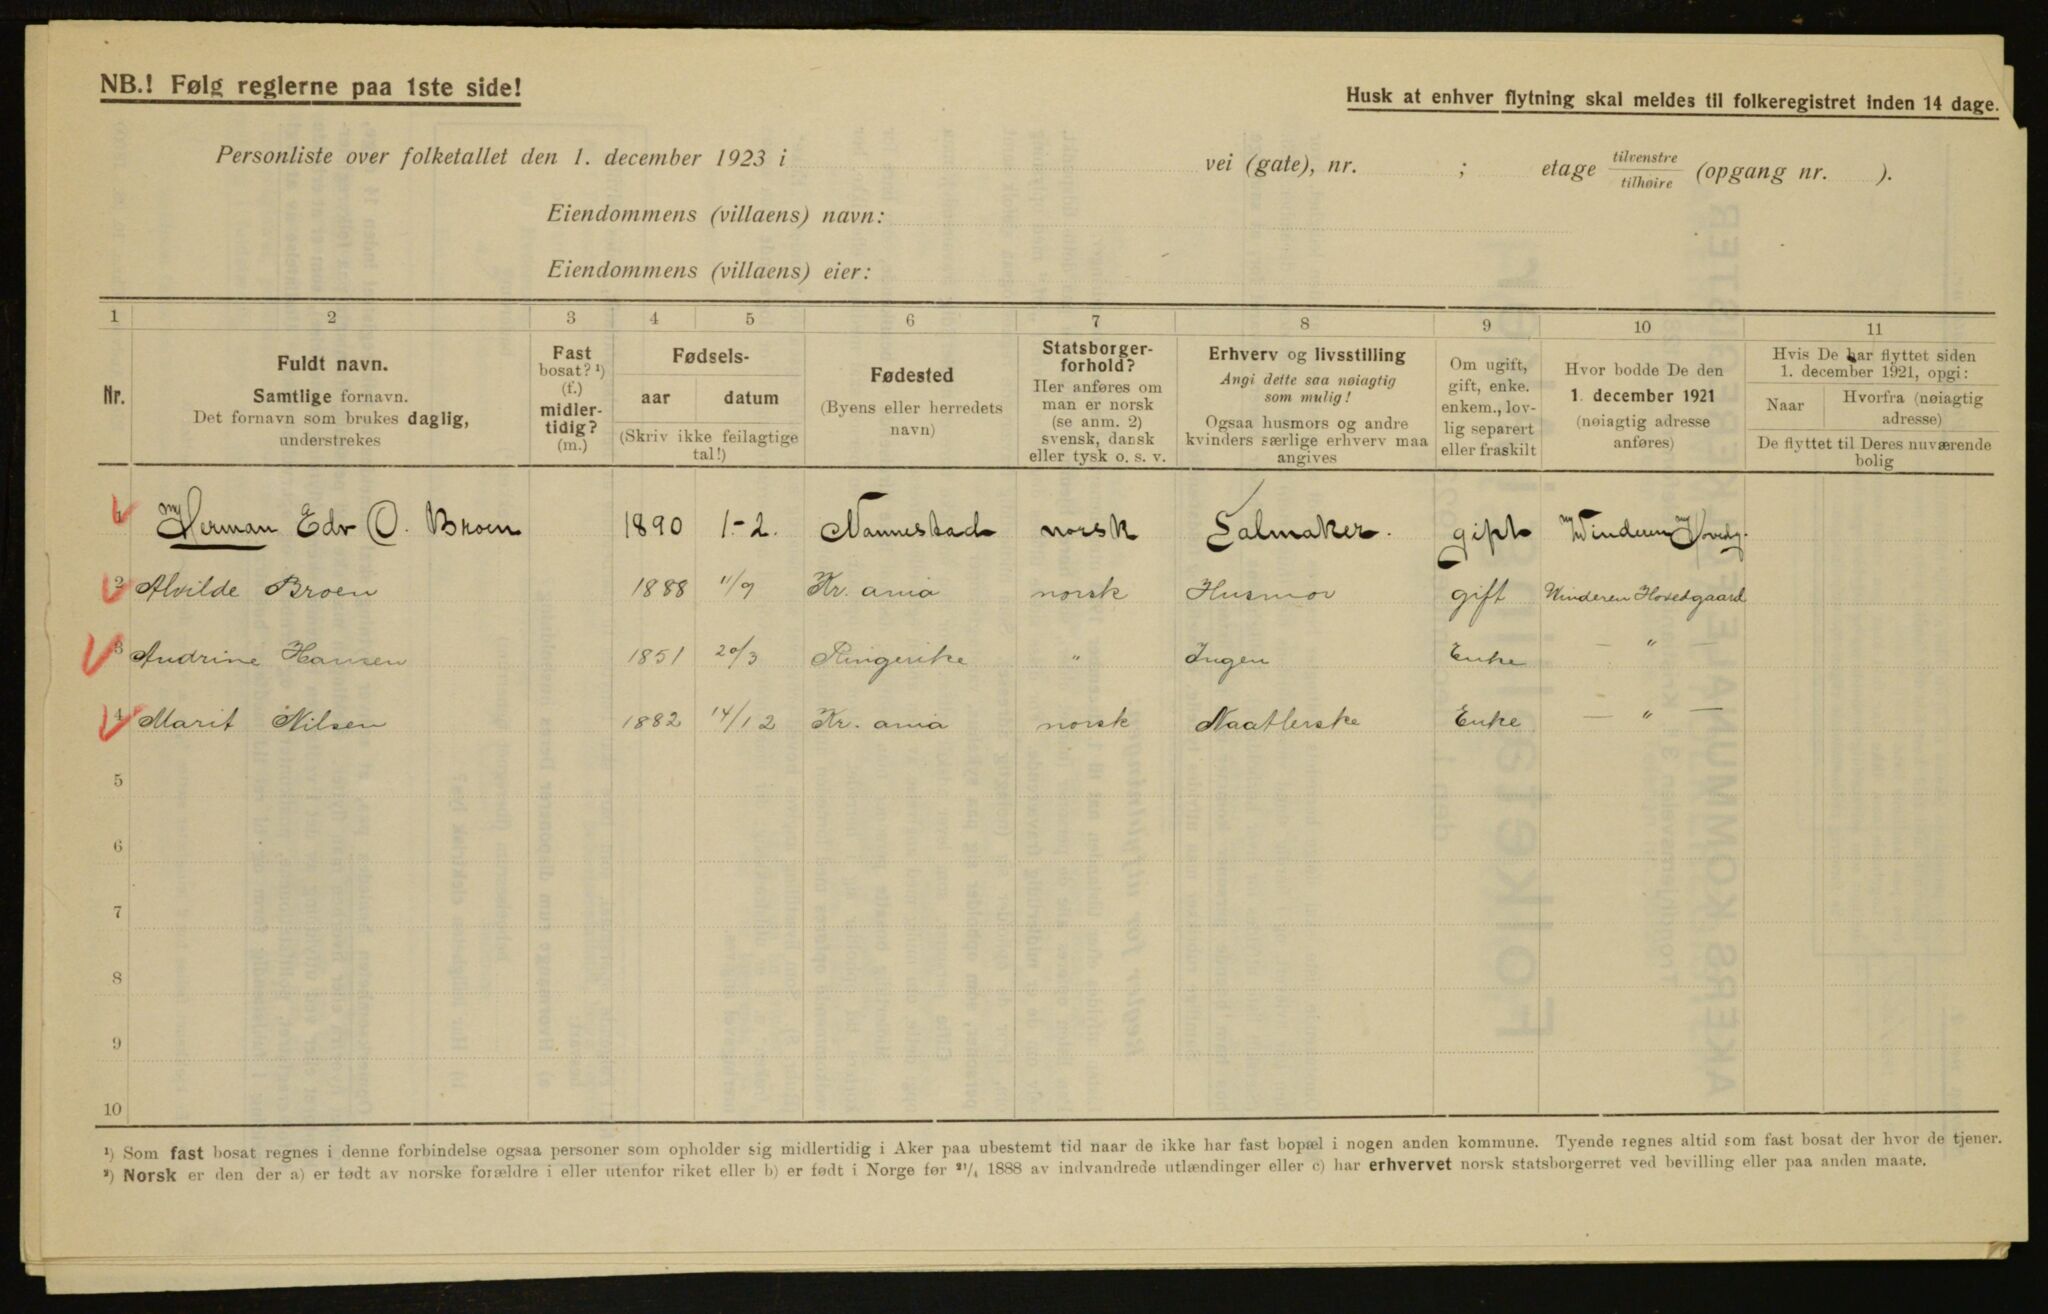 NB.! Følg reglerne paa 1ste side!
Husk at enhver flytning skal meldes til folkeregistret inden 14 dage.
Personliste over folketallet den 1. december 1923 i vei (gate), nr. ; etage tilvenstre / tilhøire (opgang nr. ).
Eiendommens (villaens) navn:
Eiendommens (villaens) eier:
1 2 3 4 5 6 7 8 9 10 11
Nr.
Fuldt navn.
Samtlige fornavn.
Det fornavn som brukes daglig,
understrekes
Fast
bosat? ¹)
(f.)
midler-
tidig?
(m.)
Fødsels-
aar datum
(Skriv ikke feilagtige
tal!)
Fødested
(Byens eller herredets
navn)
Statsborger-
forhold?
Her anføres om
man er norsk
(se anm. 2)
svensk, dansk
eller tysk o. s. v.
Erhverv og livsstilling
Angi dette saa nøiagtig
som mulig!
Ogsaa husmors og andre
kvinders særlige erhverv maa
angives
Om ugift,
gift, enke.
enkem., lov-
lig separert
eller fraskilt
Hvor bodde De den
1. december 1921
(nøiagtig adresse
anføres)
Hvis De har flyttet siden
1. december 1921, opgi:
Naar
Hvorfra (nøiagtig
adresse)
De flyttet til Deres nuværende
bolig
1 Herman Edv O. Broen 1890 1-2. Nannestad norsk Salmaker. gift Winderen Hovedg.
2 Alvilde Broen 1888 11/9 Kr. ania norsk Husmor gift Winderen Hovedgaard
3 Andrine Hansen 1851 20/3 Ringerike " Ingen Enke — "
4 Marit Nilsen 1882 14/12 Kr. ania norsk Naatlerske Enke — " —
5
6
7
8
9
10
¹) Som fast bosat regnes i denne forbindelse ogsaa personer som opholder sig midlertidig i Aker paa ubestemt tid naar de ikke har fast bopæl i nogen anden kommune. Tyende regnes altid som fast bosat der hvor de tjener.
²) Norsk er den der a) er født av norske forældre i eller utenfor riket eller b) er født i Norge før ²¹/₄ 1888 av indvandrede utlændinger eller c) har erhvervet norsk statsborgerret ved bevilling eller paa anden maate.